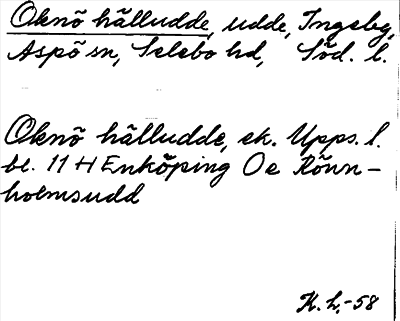 Oknö hälludde, udde, Ingebg,
Aspö sn, Selebo hd, Söd. l.
Oknö hälludde, ek. Upps. l.
bl. 11 H Enköping Oe Rönn-
holmsudd
K. L. -58